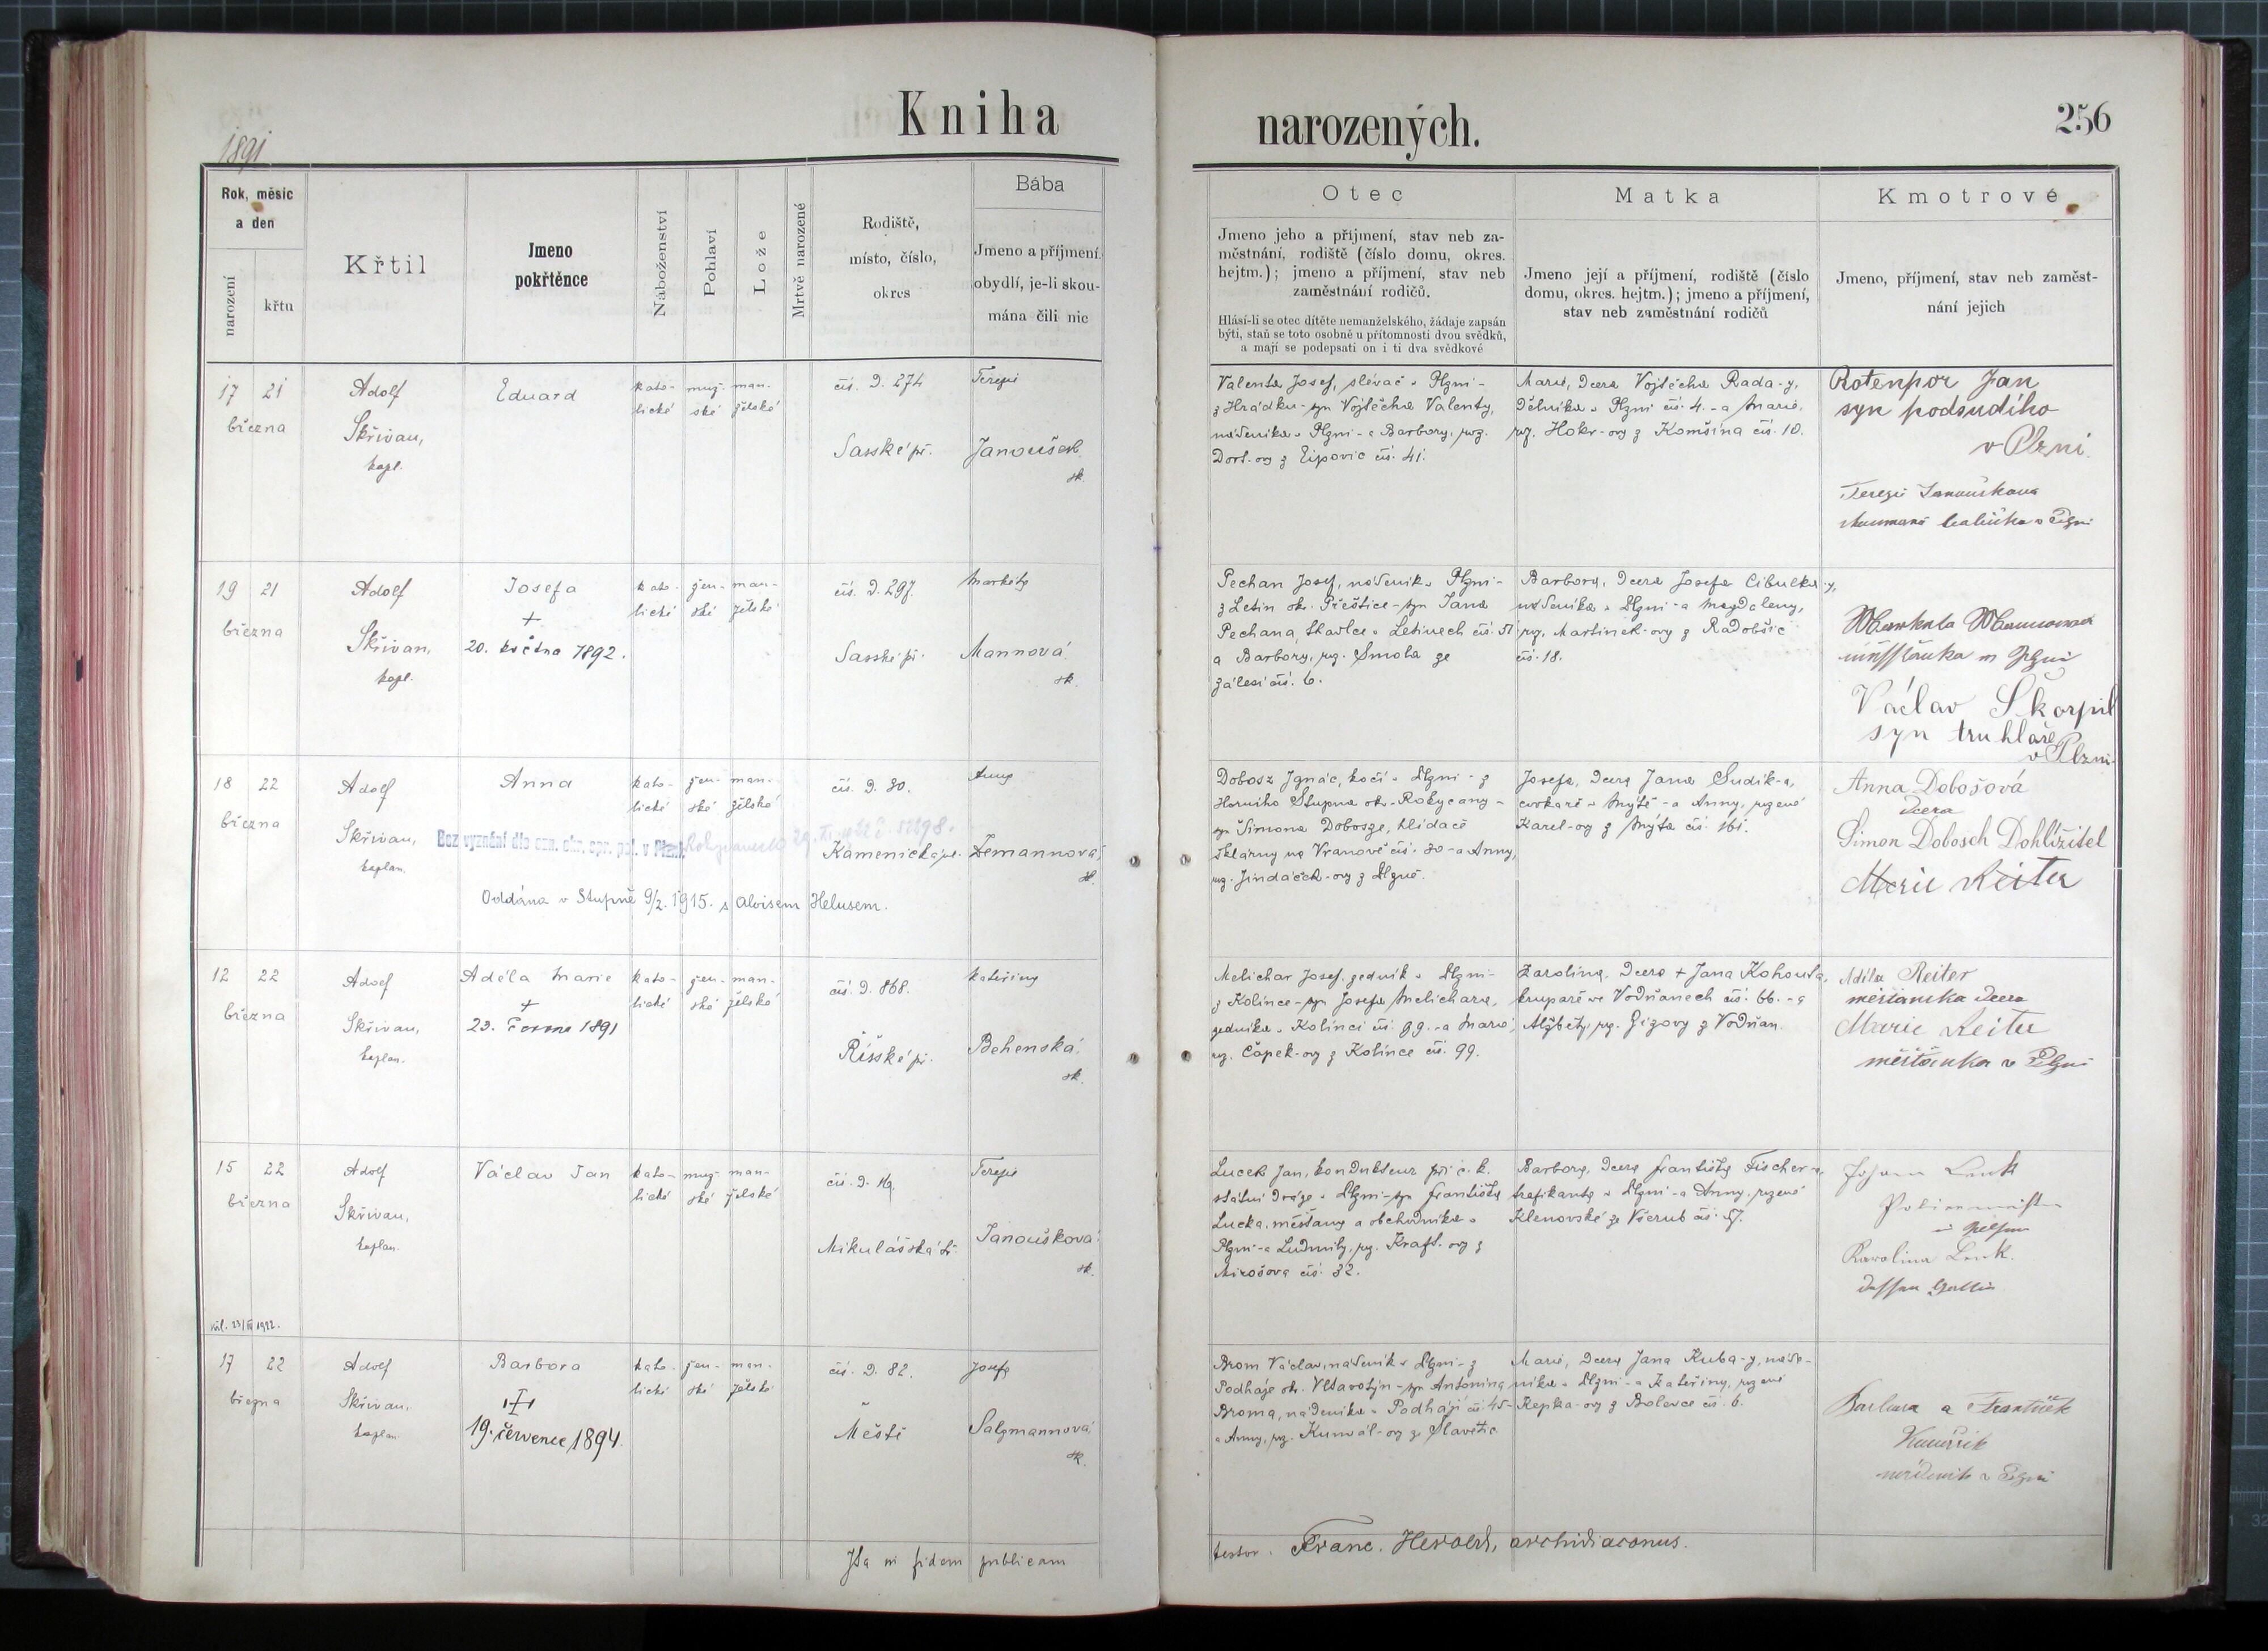 Kniha
narozených.
256
1891
Rok, měsíc
a den
narození
křtu
Křtil
Jmeno
pokřtěnce
Náboženství
Pohlaví
Lože
Mrtvě narozené
Rodiště,
místo, číslo,
okres
Bába
Jmeno a příjmení,
obydlí, je-li skou-
mána čili nic
Otec
Jmeno jeho a příjmení, stav neb za-
městnání, rodiště (číslo domu, okres.
hejtm.); jmeno a příjmení, stav neb
zaměstnání rodičů.
Hlásí-li se otec dítěte nemanželského, žádaje zapsán
býti, staň se toto osobně u přítomnosti dvou svědků,
a mají se podepsati on i ti dva svědkové
Matka
Jmeno její a příjmení, rodiště (číslo
domu, okres. hejtm.); jmeno a příjmení,
stav neb zaměstnání rodičů
Kmotrové
Jmeno, příjmení, stav neb zaměst-
nání jejich
17 21
března
Adolf
Skřivan,
kapl.
Eduard
kato-
lické
muž-
ské
man-
želské
čís. d. 274
Sasské př.
Terezie
Janoušek.
sk.
Valenta Josef, slévač v Plzni -
z Hrádku - syn Vojtěcha Valenty,
nádeníka v Plzni - a Barbory, roz.
čís. 41.
Marie, dcera Vojtěcha Rada-y,
dělníka v Plzni čís. 4. - a Marie,
čís. 10.
Rotenpor Jan
syn podsudího
v Plzni.
Terezie Janoušková
19 21
března
Adolf
Skřivan,
kapl.
Josefa
+
20. května 1892.
kato-
lické
žen-
ské
man-
želské
čís. d. 297.
Sasské př.
Markéta
Mannová.
sk.
Pechan Josef, nádeník v Plzni -
z Letin okr. Přeštice - syn Jana
Pechana, tkalce v Letinech čís. 51
a Barbory, roz. Smola ze
Zálesí čís. 6.
Barbora, dcera Josefa Cibulka-y,
nádeníka v Plzni - a Magdaleny,
roz. Martinek-ovy z Radobšic
čís. 18.
Václav Škorpil
syn truhláře
v Plzni
18 22
března
Adolf
Skřivan,
kaplan.
Anna
kato-
lické
žen-
ské
man-
želské
čís. d. 30.
Kamenická ul.
Anna
Zemannová,
sk.
Bez vyznání dle ozn. okr. spr. pol. v Plzni
Oddána v Stupně 9/2. 1915. s Aloisem Helusem.
Dobosz Ignác, kočí v Plzni - z
Horního Stupna okr. Rokycany -
syn Šimona Dobosze, hlídače
sklárny na Vranově čís. 80 - a Anny,
roz. Jindáček-ovy z Plzně.
Josefa, dcera Jana Sudík-a,
cvokaře v Mýtě - a Anny, rozené
Karel-ovy z Mýta čís. 161.
Anna Dobošová
dcera
Simon Dobosch Dohlížitel
Marie Reiter
12 22
března
Adolf
Skřivan,
kaplan.
Adéla Marie
+
23. června 1891
kato-
lické
žen-
ské
man-
želské
čís. d. 868.
Říšské př.
Kateřina
Behenská.
sk.
Melichar Josef, zedník v Plzni -
z Kolince - syn Josefa Melichara,
zedníka v Kolinci čís. 99. - a Marie,
roz. Čapek-ovy z Kolince čís. 99.
Karolina, dcera + Jana Kohouta,
krupaře ve Vodňanech čís. 66. - a
Alžběty, roz. Gizovy z Vodňan.
Adéla Reiter
měšťanská dcera
Marie Reiter
měšťanka v Plzni
15 22
března
Adolf
Skřivan,
kaplan.
Václav Jan
kato-
lické
muž-
ské
man-
želské
čís. d. 16.
Mikulášská tř.
Terezie
Janoušková.
sk.
Lucek Jan, kondukteur při c. k.
státní dráze v Plzni - syn Františka
Lucka, měšťana a obchodníka v
Plzni - a Ludmily, roz. Kraft-ovy z
Mirošova čís. 32.
Barbora, dcera Františka Fischer-a,
trafikanta v Plzni - a Anny, rozené
Klenovské ze Všerub čís. 57.
Karolina Lenk.
17 22
března
Adolf
Skřivan,
kaplan.
Barbora
19. července 1894.
kato-
lické
žen-
ské
man-
želské
čís. d. 82.
Městě
Josefa
Salzmannová.
sk.
Brom Václav, nádeník v Plzni - z
Podháje okr. Vltavotýn - syn Antonína
Broma, nádeníka v Podhájí čís. 45 -
a Anny, roz. Kunvál-ovy ze Slavětic
Marie, dcera Jana Kuba-y, náde-
níka v Plzni - a Kateřiny, rozené
Řepka-ovy z Bolevce čís. 6.
Barbara a František
nádeník v Plzni
Ita in fidem publicam
testor. Franc. Herold, archidiaconus.